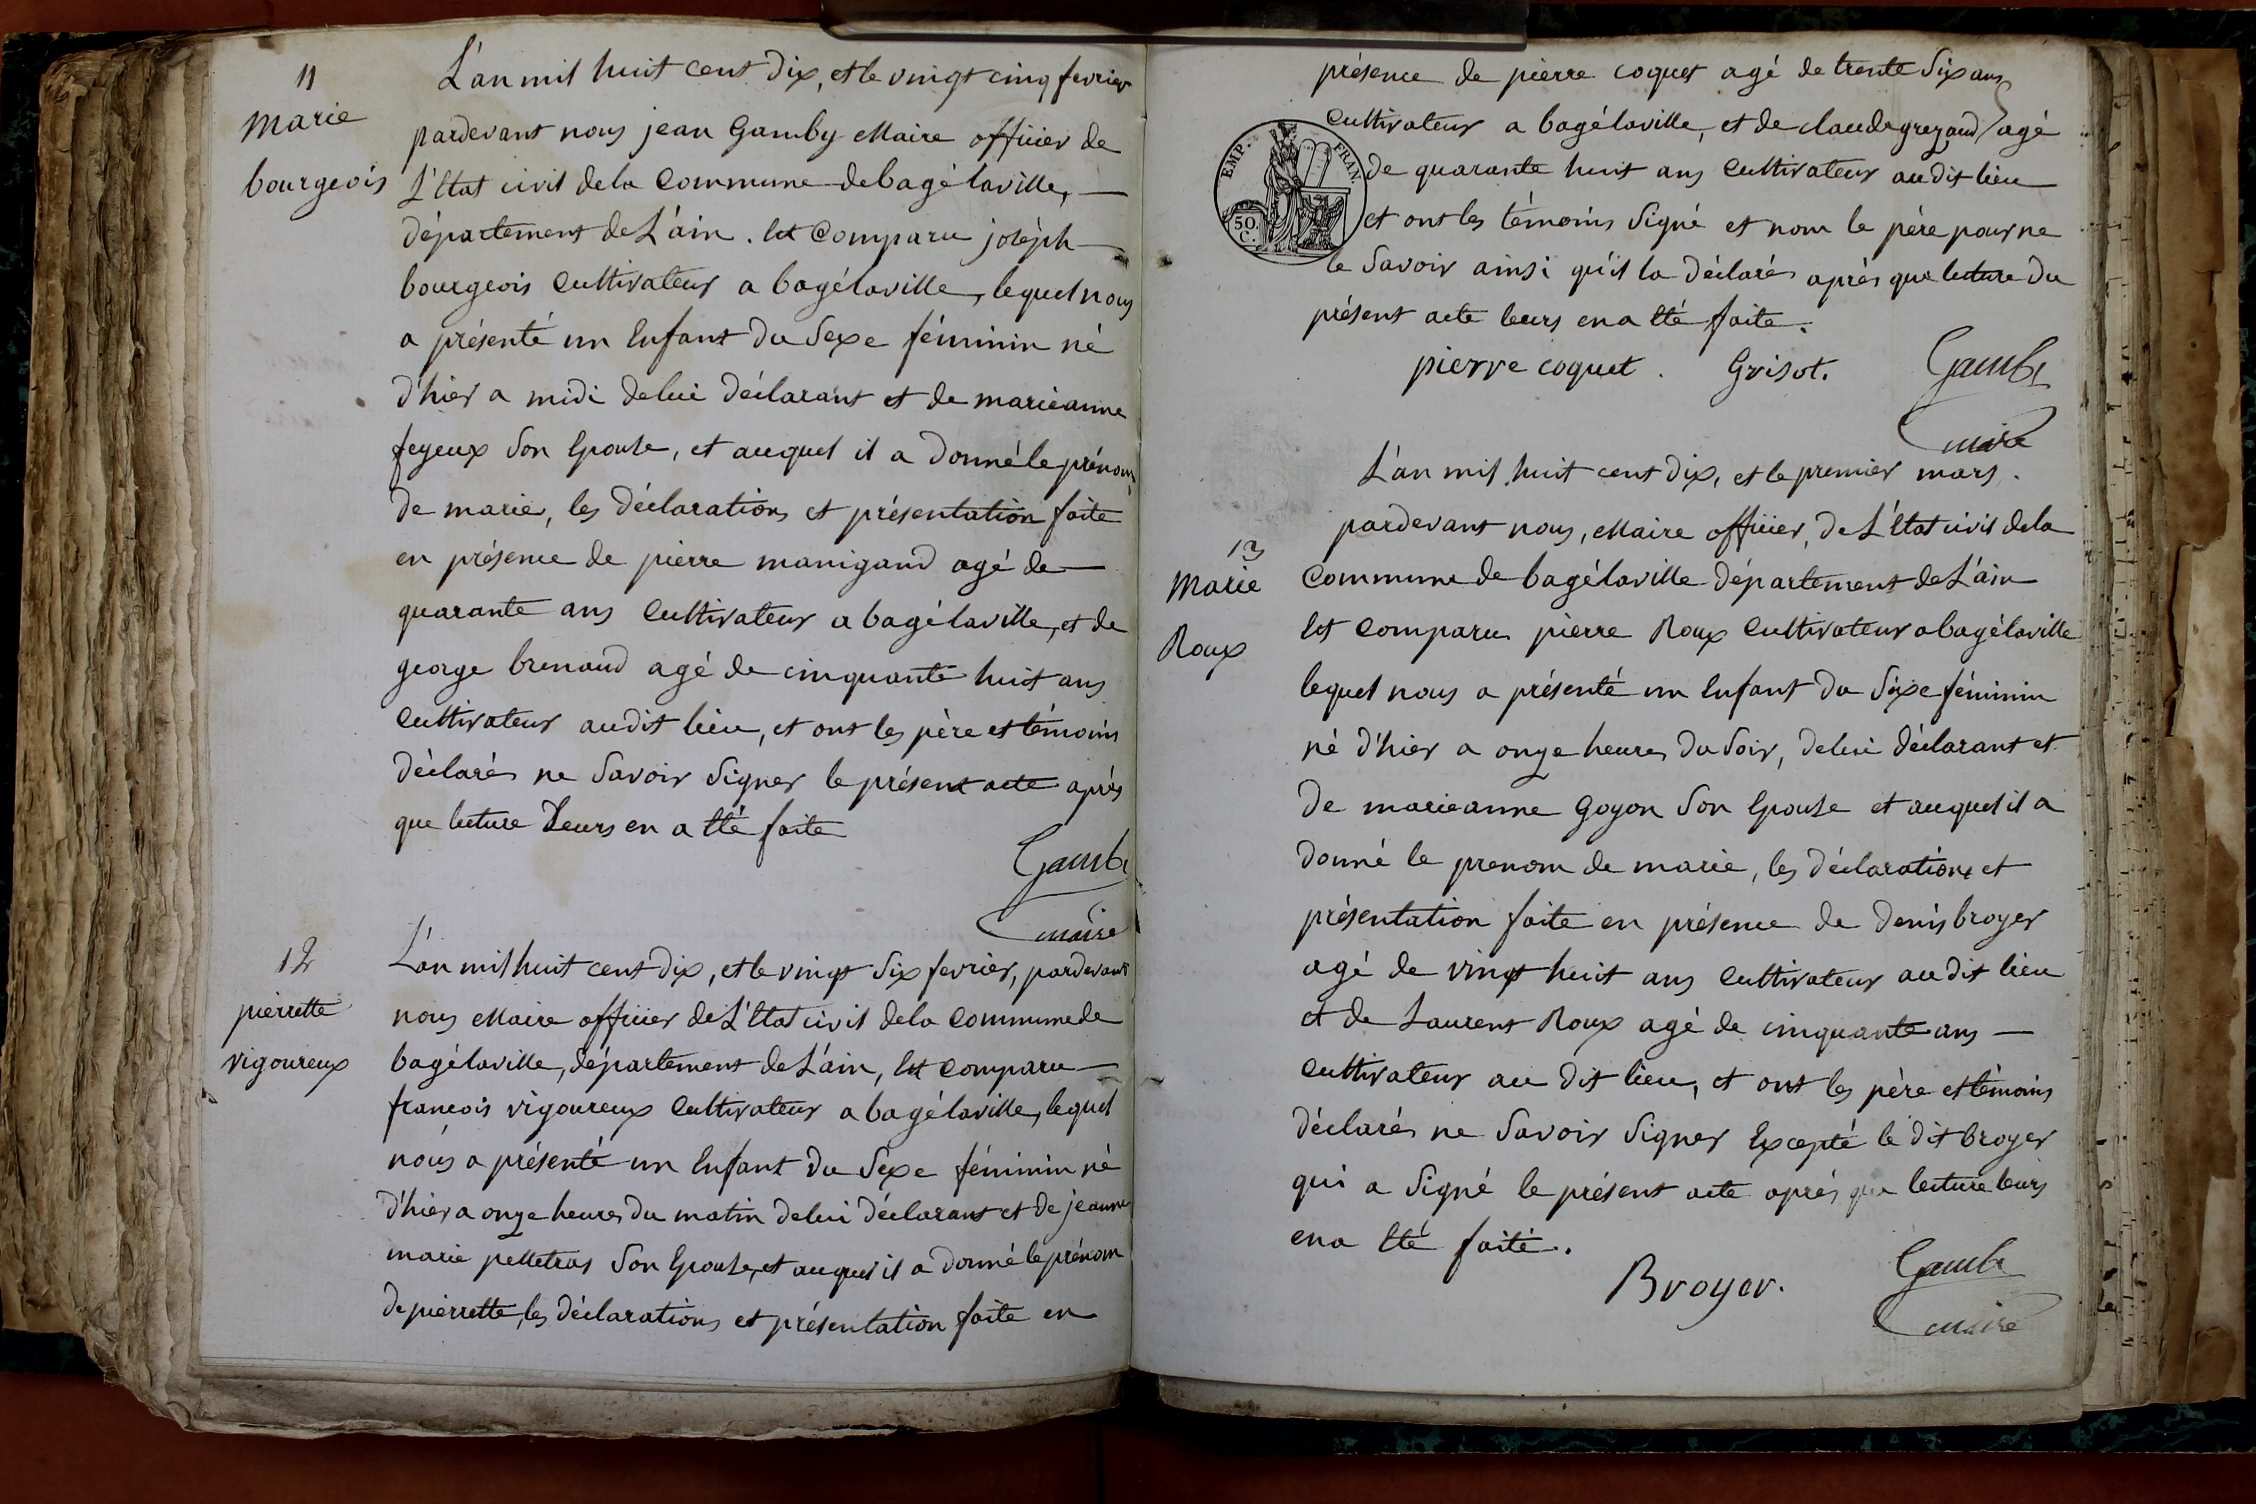 11
Marie
bourgeois
L'an mil huit cent dix, et le vingt cinq fevrier
pardevant nous jean Gamby Maire officier de
L'Etat civil de la Commune de bagélaville,
département de L'ain. Est Comparu joséph
bourgeois Cultivateur a bagélaville, lequel nous
a présenté un Enfant du Sexe féminin né
d'hier a midi de lui déclarant et de marieanne
feyeux Son Epouse, et auquel il a Donné le prénom
de marie, les déclarations et présentation faite
en présence de pierre manigand agé de
quarante ans Cultivateur a bagélaville, et de
george brenaud agé de cinquante huit ans
Cultivateur au dit lieu, et ont les père et témoins
déclarés ne Savoir Signer le présent acte après
que lecture Leurs en a Eté faite
Gamby
maire
12
pierrette
vigoureux
L'an mil huit cent dix, et le vingt Six fevrier, pardevant
nous Maire officier de L'Etat civil de la Commune de
bagélaville, département de L'ain, Est Comparu
françois vigoureux Cultivateur a bagélaville, lequel
nous a présenté un Enfant du Sexe féminin né
d'hier a onze heures du matin de lui déclarant et de jeanne
marie pelletras Son Epouse, et auquel il a Donné le prénom
de pierrette, les déclarations et présentation faite en
présence de pierre coquet agé de trente Six ans
Cultivateur a bagélaville, et de claude agé
de quarante huit ans Cultivateur au dit lieu
et ont les témoins Signé et nom le père pour ne
le Savoir ainsi qu'il la déclarés après que lecture du
présent acte leurs en a Eté faite.
EMP. FRAN.
50.
C.
pierre coquet. Grisot. Gamby
maire
13
Marie
Roux
L'an mil huit cent dix, et le premier mars.
pardevant nous, Maire officier, de L'Etat civil de la
Commune de bagélaville département de L'ain
Est Comparu pierre Roux Cultivateur a bagélaville
lequel nous a présenté un Enfant du Sexe féminin
né d'hier a onze heures du Soir, de lui déclarant et
de marieanne Goyon Son Epouse et auquel il a
donné le prenom de marie, les déclarations et
présentation faite en présence de denis broyer
agé de vingt huit ans Cultivateur au dit lieu
et de Laurent Roux agé de cinquante ans
Cultivateur au dit lieu, et ont les père et témoins
déclarés ne Savoir Signer Excepté le dit broyer
qui a Signé le présent acte après que lecture leurs
en a Eté faite.
Broyer. Gamby
maire